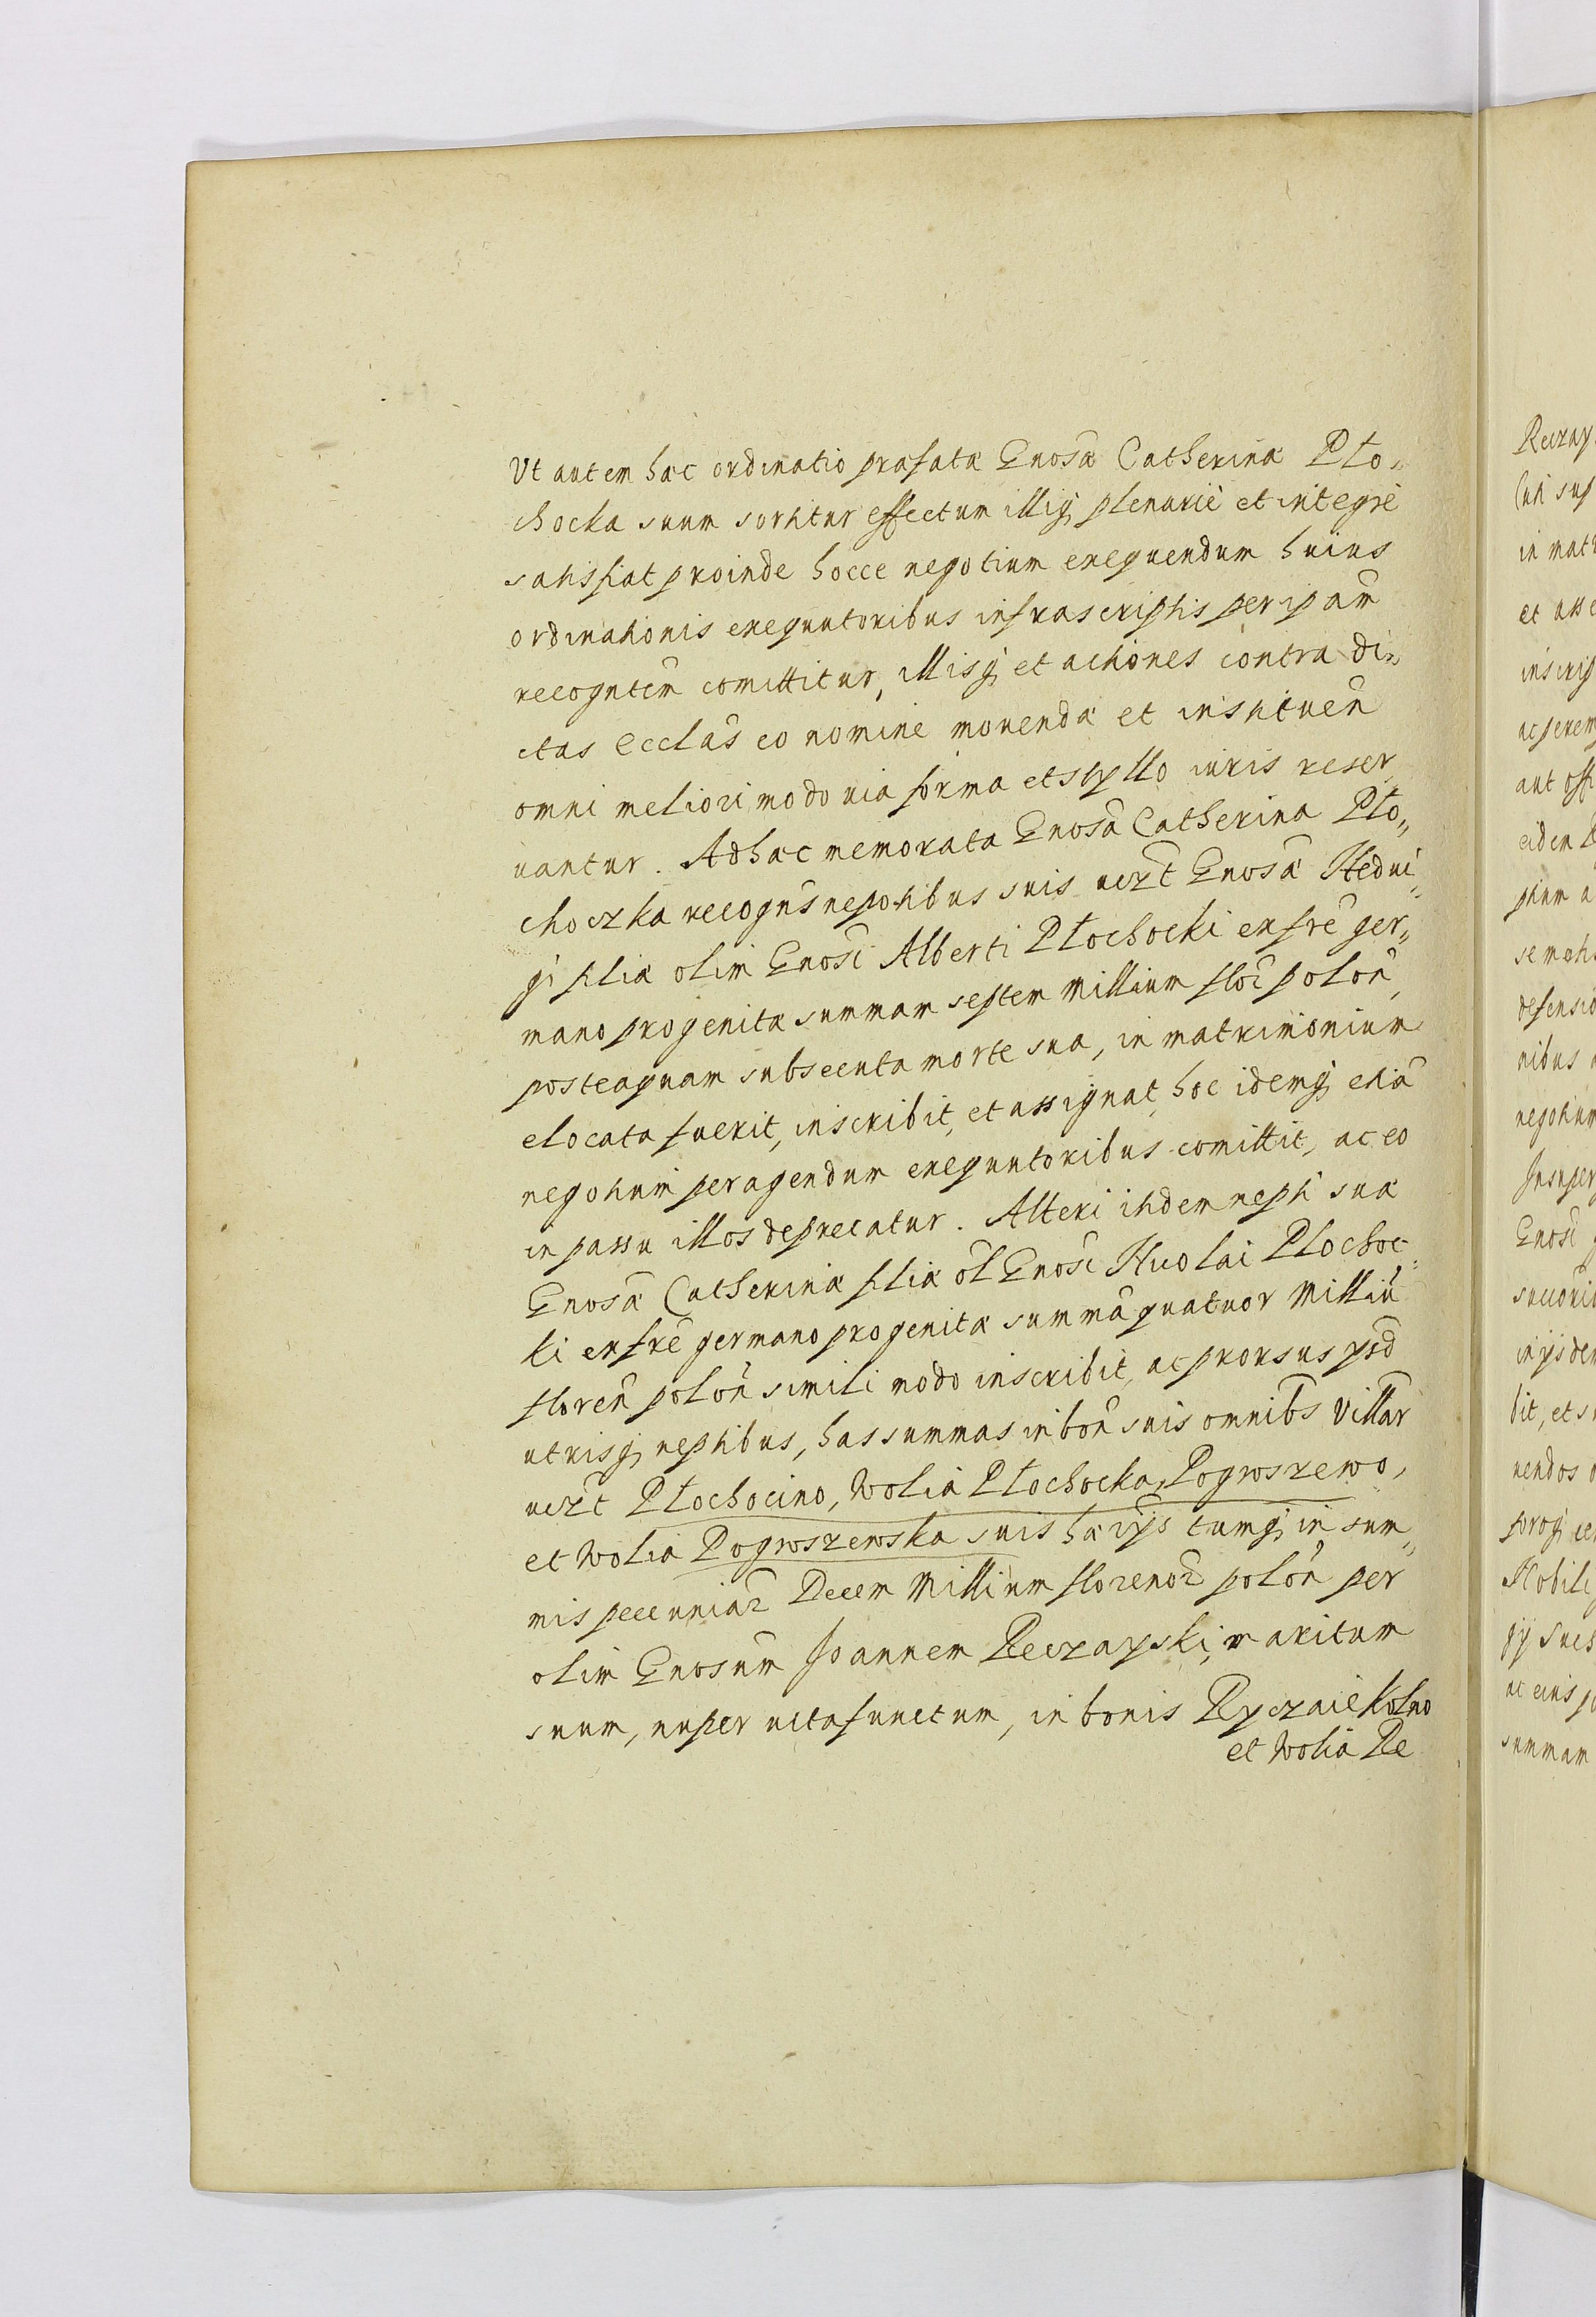 Ut autem hæc ordinatio præfatæ Gnosæ Catherinæ Pło„
chocka suum sortitur effectum illiq; plenariè et integrè
satisfiat proinde hocce negotium exequendum huius
ordinationis exequutoribus infrascriptis per ipam̃
recogntem̃ comittitur, illisq; et actiones contra di„
ctas Ecclãs eo nomine mouendæ et instituen̄
omni meliori modo via forma et styllo iuris reser„
uantur. Ad hæc memorata Gnosa Catherina Pło„
choczka recogñs nepotibus suis vezt Gnosæ Hedui„
gi filiæ olim Gnosi Alberti Płochocki ex frẽ ger„
mano progenitæ summam septem Millium floz polon̄,
posteaquam subsecuta morte sua, in matrimonium
elocata fuerit, inscribit, et assignat, hoc idemq; etiã
negotium peragendum exequutoribus comittit, ac eo
in passu illos deprecatur. Alteri itidem nepti suæ
Gnosæ Catherinæ filiæ ol̃ Gnosi Nicolai Płochoc„
ki ex frẽ germano progenitæ summã quatuor Milliũ
floren̄ polon̄ simili modo inscribit, ac prorsus psd̃
utrisq; neptibus, has summas in bon̄ suis omnibs Villar̃
vezt Płochocino, Wolia Płochocka, Pogroszewo,
et Wolia Pogroszewska suis hæ͠ijs tumq; in sum„
mis peccuniaz Decem Millium florenoz polon̄ per
olim Gnosum Joannem Reczayski, maritum
suum, nuper vita functum, in bonis Ryczaiekolno
et Wolia Re
Reczay
in mat
et asse
inscrip
ac perem
aut offi
eidem
defensio
nibus
negotium
Insuper
Gnosi
bit, et s
Nobili
ac eius
summam